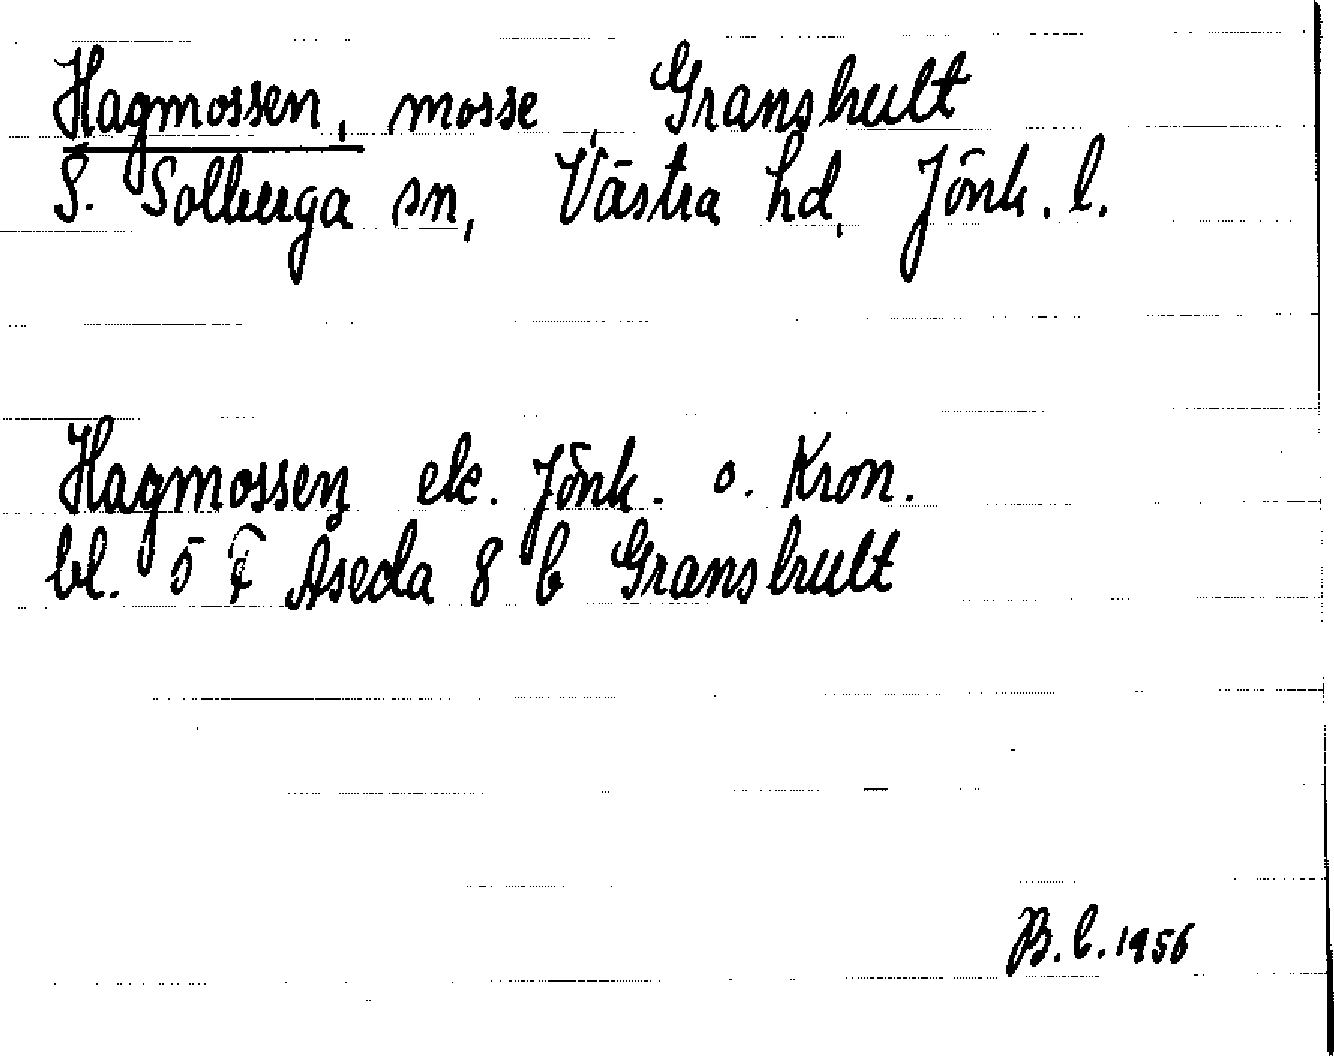 Hagmossen, mosse, Granshult
S. Solberga sn, Västra hd, Jönk. l.
Hagmossen ek. Jönk. o. Kron.
bl. 5 F Åseda 8 b Granshult
B.C. 1956